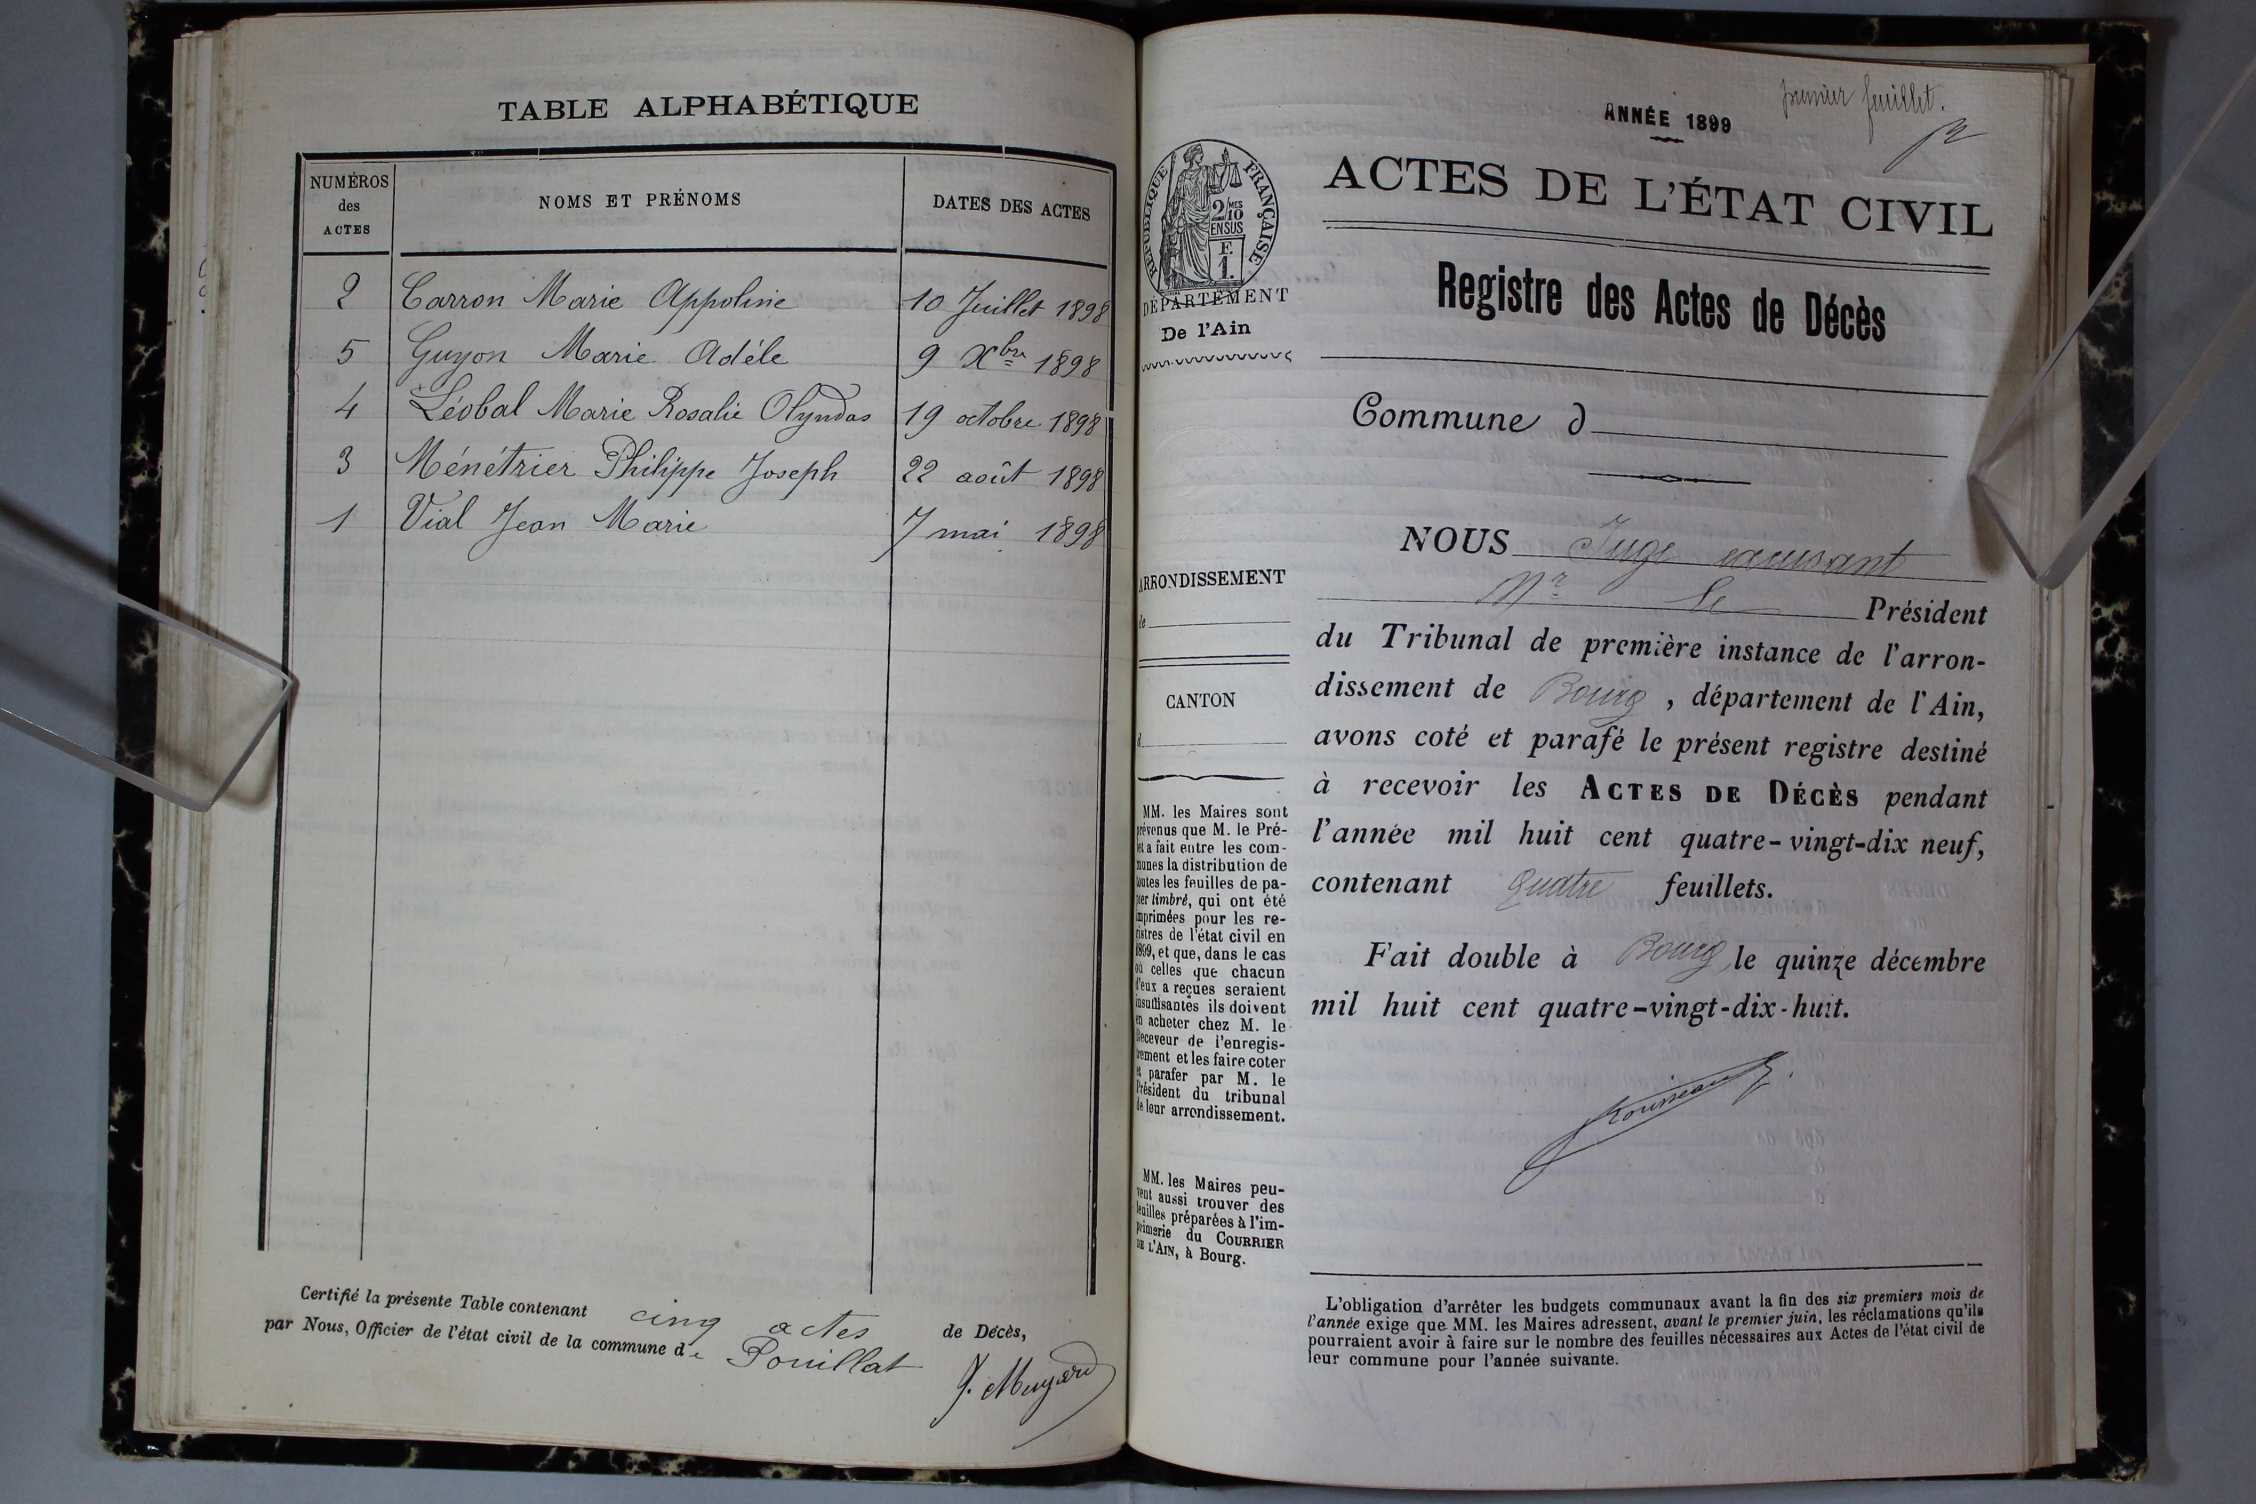 TABLE ALPHABÉTIQUE
NUMÉROS des ACTES
NOMS ET PRÉNOMS
DATES DES ACTES
2 Carron Marie Appoline 10 Juillet 1898
5 Guyon Marie Adéle 9 Xbre 1898
4 Léobal Marie Rosalie Olyndas 19 octobre 1898
3 Ménétrier Philippe Joseph 22 août 1898
1 Vial Jean Marie 7 mai 1898
Certifié la présente Table contenant cinq actes de Décès,
par Nous, Officier de l'état civil de la commune de Pouillat
J. Muyard
premier feuillet.
ANNÉE 1899
ACTES DE L'ÉTAT CIVIL
RÉPUBLIQUE FRANÇAISE
2/10MES
EN SUS
F.
1.
DÉPARTEMENT
De l'Ain
Registre des Actes de Décès
Commune d
NOUS Juge excusant
Mr le Président
du Tribunal de première instance de l'arron-
dissement de Bourg, département de l'Ain,
avons coté et parafé le présent registre destiné
à recevoir les ACTES DE DÉCÈS pendant
l'année mil huit cent quatre-vingt-dix neuf,
contenant quatre feuillets.
Fait double à Bourg le quinze décembre
mil huit cent quatre-vingt-dix-huit.
Rousseau
ARRONDISSEMENT
de
CANTON
d
MM. les Maires sont
prévenus que M. le Pré-
fet a fait entre les com-
munes la distribution de
toutes les feuilles de pa-
pier timbré, qui ont été
imprimées pour les re-
gistres de l'état civil en
1899, et que, dans le cas
où celles que chacun
d'eux a reçues seraient
insuffisantes ils doivent
en acheter chez M. le
Receveur de l'enregis-
trement et les faire coter
et parafer par M. le
Président du tribunal
de leur arrondissement.
MM. les Maires peu-
vent aussi trouver des
feuilles préparées à l'im-
primerie du COURRIER
DE L'AIN, à Bourg.
L'obligation d'arrêter les budgets communaux avant la fin des six premiers mois de
l'année exige que MM. les Maires adressent, avant le premier juin, les réclamations qu'ils
pourraient avoir à faire sur le nombre des feuilles nécessaires aux Actes de l'état civil de
leur commune pour l'année suivante.